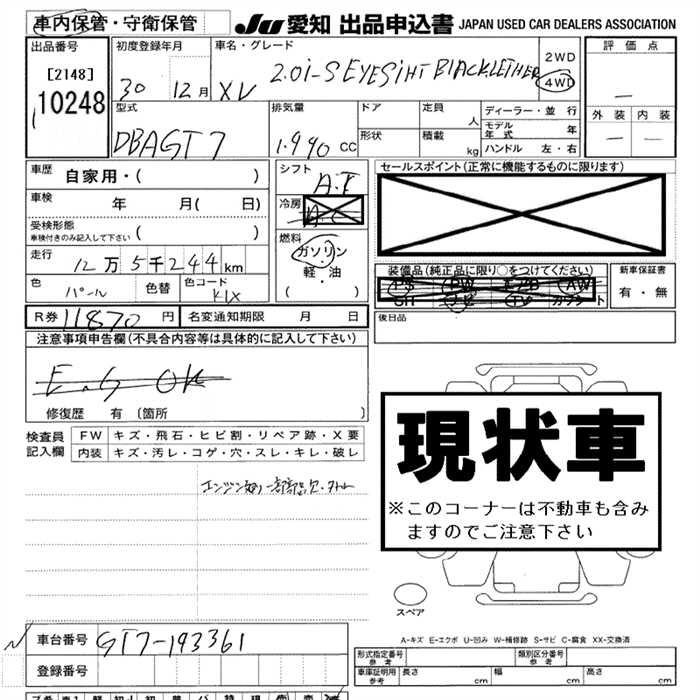 車内保管・守衛保管 JU 愛知 出品申込書 JAPAN USED CAR DEALERS ASSOCIATION
出品番号 初度登録年月 車名・グレード 2WD 評価点
[2148] 30 12月 XV 2.0i-S EYESiHT BLACK LETHER 4WD
10248 型式 排気量 ドア 定員 人 ディーラー・並行 外装 内装
DBAGT7 1.990 CC 形状 積載 kg モデル年式 年
ハンドル 左・右
車歴 自家用・( ) シフト A.T セールスポイント(正常に機能するものに限ります)
車検 年 月( 日) 冷房 A.C
受検形態
車検付きのみ記入して下さい ( ) 燃料
走行 12万5千244km ガソリン 装備品(純正品に限り○をつけてください) 新車保証書
色 パール 色替 色コード K1X 軽・油 PW AW 有・無
( )
R券 11870円 名変通知期限 月 日 後日品
注意事項申告欄(不具合内容等は具体的に記入して下さい)
E.G OK
修復歴 有 〔箇所 〕
検査員 FW キズ・飛石・ヒビ割・リペア跡・X要
記入欄 内装 キズ・汚レ・コゲ・穴・スレ・キレ・破レ
現状車
※このコーナーは不動車も含み
ますのでご注意下さい
スペア
A-キズ E-エクボ U-凹み W-補修跡 S-サビ C-腐食 XX-交換済
車台番号 GT7-193361 形式指定番号 参考 類別区分番号 参考
登録番号 車庫証明用 参考 長さ cm 幅 cm 高さ cm